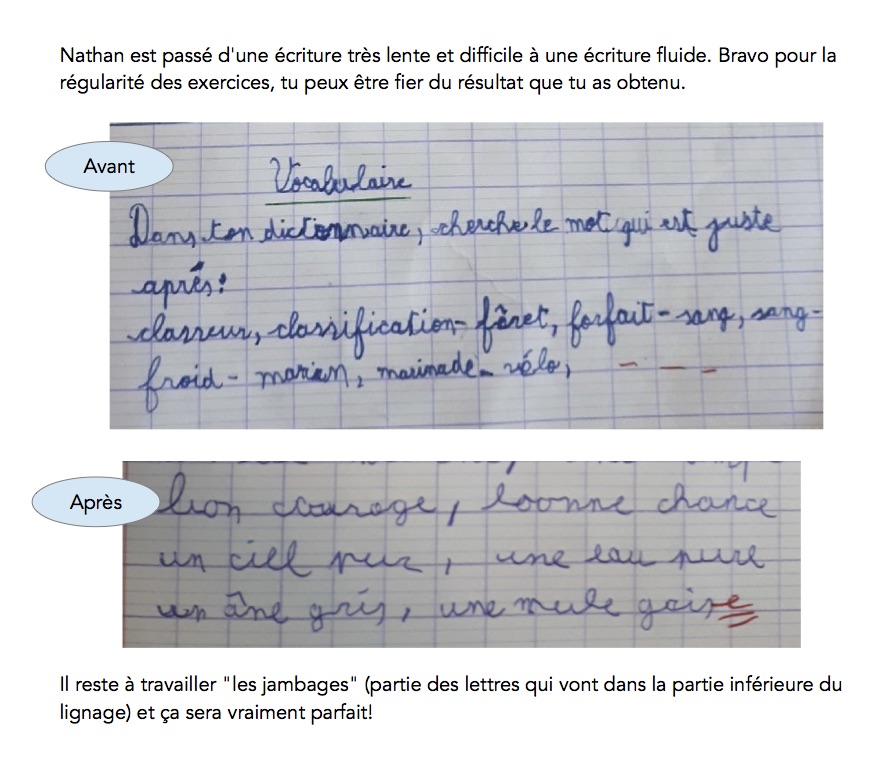 Nathan est passé d'une écriture très lente et difficile à une écriture fluide. Bravo pour la
régularité des exercices, tu peux être fier du résultat que tu as obtenu.
Avant
Vocabulaire
Dans ton dictionnaire, cherche le mot qui est juste
après :
classeur, classification - fôret, forfait - sang, sang-
froid - marian, marinade - vélo,
Après
bon courage, bonne chance
un ciel pur, une eau pure
un âne gris, une mule
Il reste à travailler "les jambages" (partie des lettres qui vont dans la partie inférieure du
lignage) et ça sera vraiment parfait!